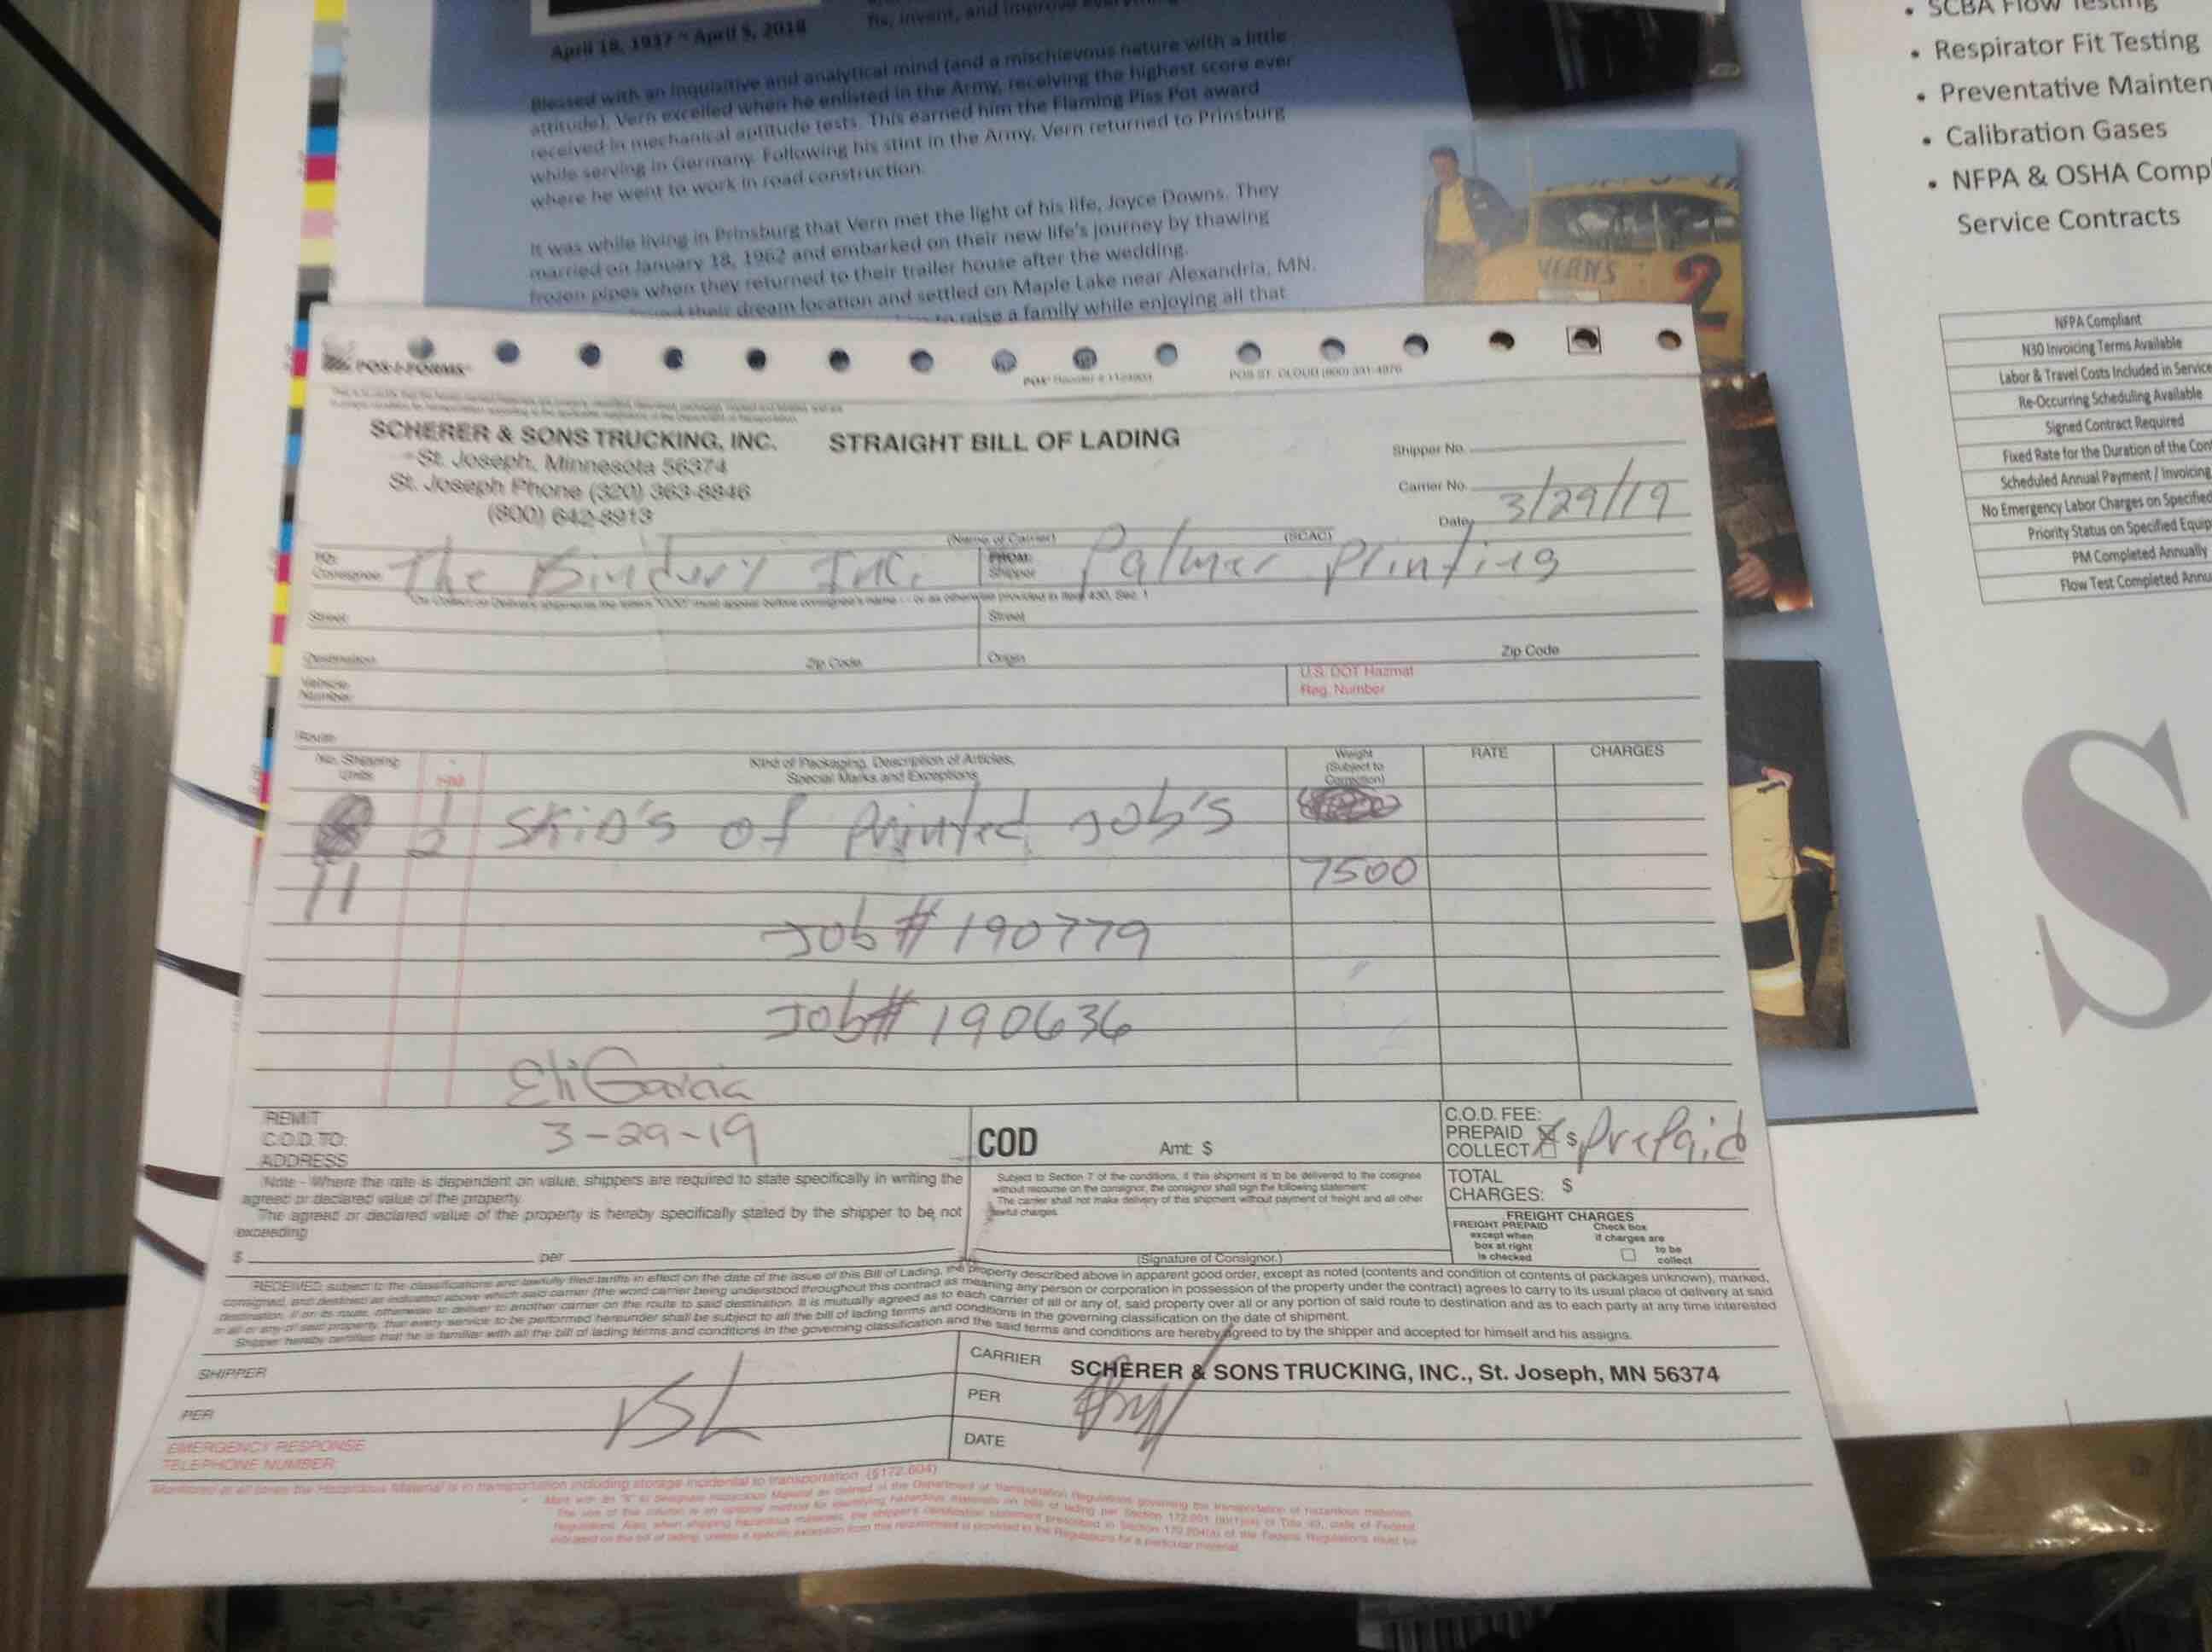 April 18, 1937 ~ April 5, 2018
fix, invent, and improve
Blessed with an inquisitive and analytical mind (and a mischievous nature with a little
attitude), Vern excelled when he enlisted in the Army, receiving the highest score ever
received in mechanical aptitude tests. This earned him the Flaming Piss Pot award
while serving in Germany. Following his stint in the Army, Vern returned to Prinsburg
where he went to work in road construction.
It was while living in Prinsburg that Vern met the light of his life, Joyce Downs. They
married on January 18, 1962 and embarked on their new life's journey by thawing
frozen pipes when they returned to their trailer house after the wedding.
their dream location and settled on Maple Lake near Alexandria, MN.
to raise a family while enjoying all that
VERNS 2
• SCBA Flow Testing
• Respirator Fit Testing
• Preventative Mainten
• Calibration Gases
• NFPA & OSHA Comp
Service Contracts
NFPA Compliant
N30 Invoicing Terms Available
Labor & Travel Costs Included in Service
Re-Occurring Scheduling Available
Signed Contract Required
Fixed Rate for the Duration of the Con
Scheduled Annual Payment / Invoicing
No Emergency Labor Charges on Specified
Priority Status on Specified Equip
PM Completed Annually
Flow Test Completed Annu
S
POS-I-FORMS
POS ST. CLOUD (800) 331-4876
SCHERER & SONS TRUCKING, INC. STRAIGHT BILL OF LADING
St. Joseph, Minnesota 56374
St. Joseph Phone (320) 363-8846
(800) 642-8913
Shipper No.
Carrier No.
Date 3/29/19
(Name of Carrier) (SCAC)
TO: Consignee The Bindery Inc. FROM: Shipper Palmer Printing
Street Street
Destination Zip Code Origin Zip Code
Vehicle Number U.S. DOT Hazmat Reg. Number
Route
No. Shipping Units Kind of Packaging, Description of Articles, Special Marks and Exceptions Weight (Subject to Correction) RATE CHARGES
Skid's of Printed Job's
11 7500
Job# 190779
Job# 190636
Eli Garcia
3-29-19
REMIT
C.O.D. TO:
ADDRESS
COD Amt: $
C.O.D. FEE:
PREPAID
COLLECT $ Prepaid
Note - Where the rate is dependent on value, shippers are required to state specifically in writing the
agreed or declared value of the property.
The agreed or declared value of the property is hereby specifically stated by the shipper to be not
exceeding
$ per
Subject to Section 7 of the conditions, if this shipment is to be delivered to the cosignee
without recourse on the consignor, the consignor shall sign the following statement:
The carrier shall not make delivery of this shipment without payment of freight and all other
lawful charges.
(Signature of Consignor.)
TOTAL
CHARGES: $
FREIGHT CHARGES
FREIGHT PREPAID except when box at right is checked
Check box if charges are to be collect
RECEIVED, subject to the classifications and lawfully filed tariffs in effect on the date of the issue of this Bill of Lading, the property described above in apparent good order, except as noted (contents and condition of contents of packages unknown), marked,
consigned, and destined as indicated above which said carrier (the word carrier being understood throughout this contract as meaning any person or corporation in possession of the property under the contract) agrees to carry to its usual place of delivery at said
destination, if on its route, otherwise to deliver to another carrier on the route to said destination. It is mutually agreed as to each carrier of all or any of, said property over all or any portion of said route to destination and as to each party at any time interested
in all or any of said property, that every service to be performed hereunder shall be subject to all the bill of lading terms and conditions in the governing classification on the date of shipment.
Shipper hereby certifies that he is familiar with all the bill of lading terms and conditions in the governing classification and the said terms and conditions are hereby agreed to by the shipper and accepted for himself and his assigns.
SHIPPER
PER
CARRIER SCHERER & SONS TRUCKING, INC., St. Joseph, MN 56374
PER
DATE
EMERGENCY RESPONSE
TELEPHONE NUMBER:
Monitored at all times the Hazardous Material is in transportation including storage incidental to transportation (§172.604)